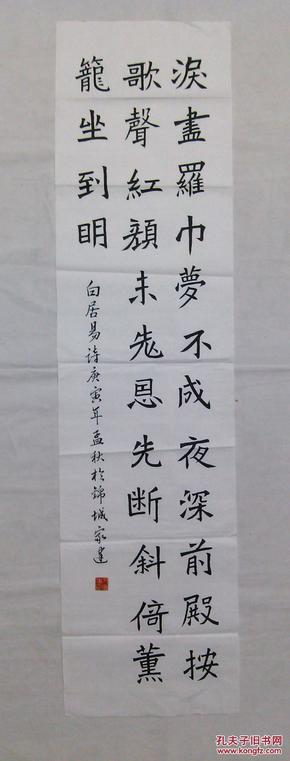 淚盡羅巾夢不成夜深前殿按
歌聲紅顏未老恩先断斜倚薰
籠坐到明
白居易诗庚寅年孟秋於锦城家建
孔夫子旧书网